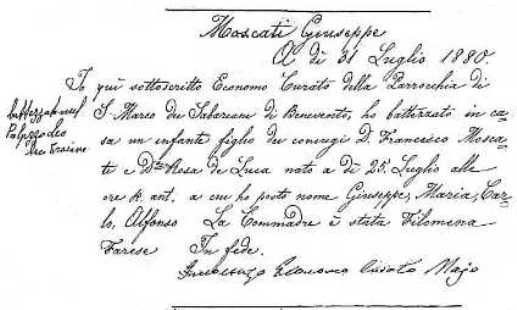 Moscati Giuseppe
A dì 31 Luglio 1880.
Io quì sottoscritto Economo Curato della Parrocchia di
S. Marco dei Sabariani di Benevento, ho battezzato in ca-
sa un infante figlio dei coniugi D. Francesco Mosca-
ti e D.na Rosa de Luca nato a dì 25. Luglio alle
ore ant. a cui ho posto nome Giuseppe, Maria, Car-
lo, Alfonso La Commadre è stata Filomena
Farese In fede.
Economo Curato Majo
battezzato nel
Palazzo Leo